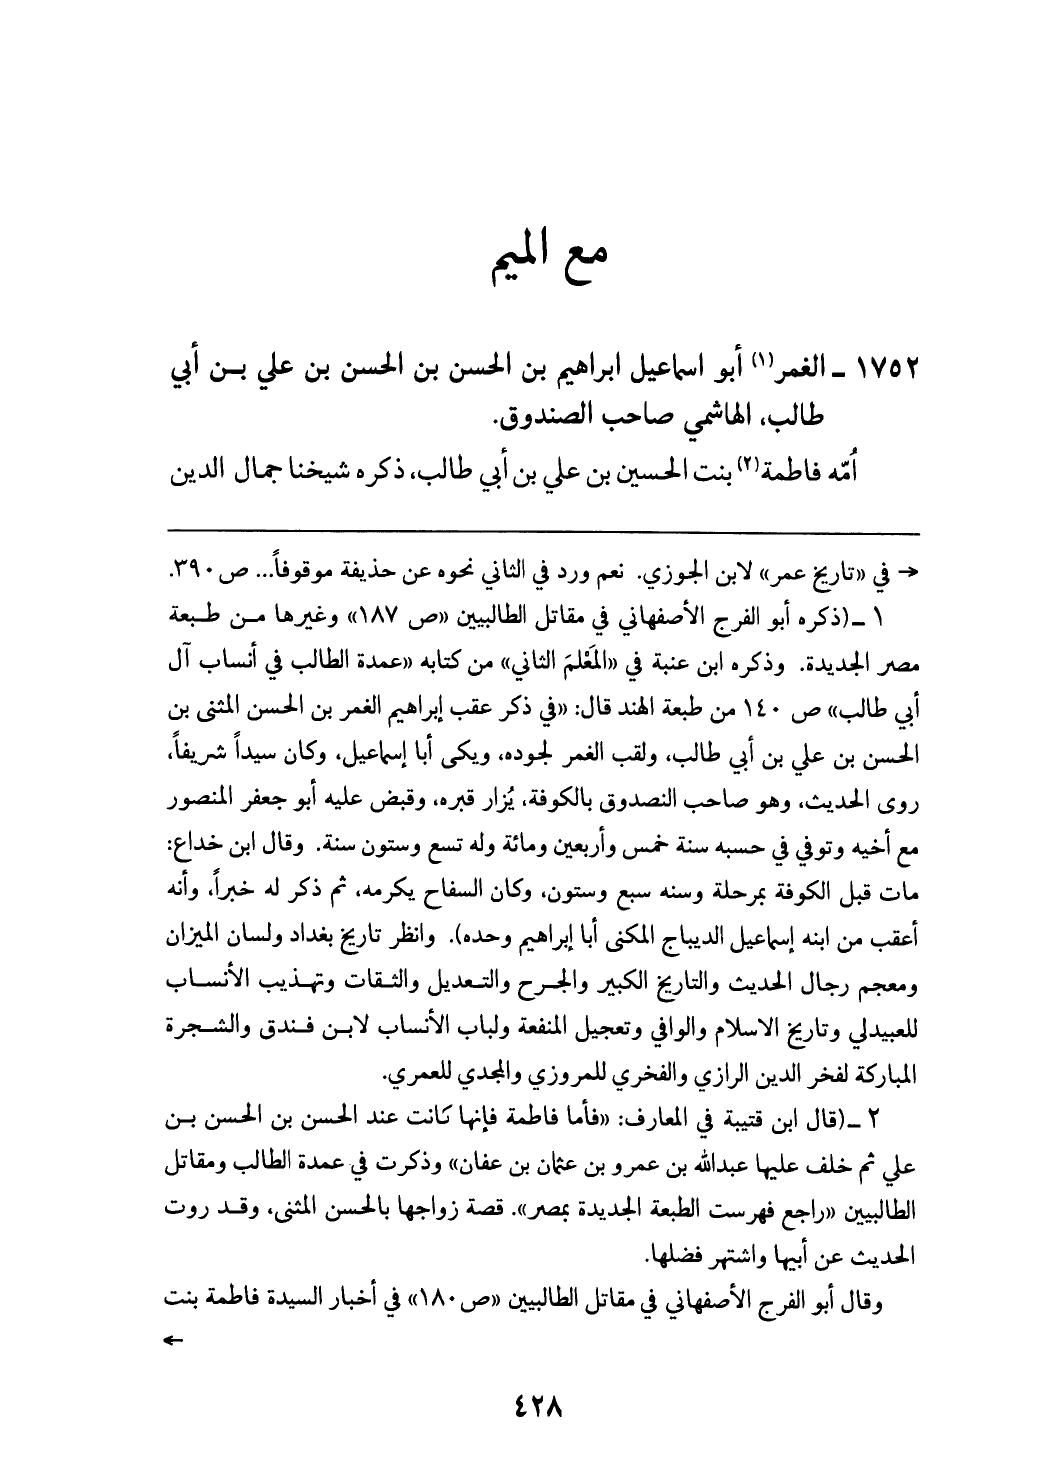 مع الميم
١٧٥٢ ـ الغمر(١) أبو اسماعيل ابراهيم بن الحسن بن الحسن بن علي بـن أبي
طالب، الهاشمي صاحب الصندوق.
أمّه فاطمة(٢) بنت الحسين بن علي بن أبي طالب، ذكره شيخنا جمال الدين
→ في «تاريخ عمر» لابن الجوزي. نعم ورد في الثاني نحوه عن حذيفة موقوفاً... ص ٣٩٠.
١ ـ (ذكره أبو الفرج الأصفهاني في مقاتل الطالبيين «ص ١٨٧» وغيرها مـن طـبعة
مصر الجديدة. وذكره ابن عنبة في «المَعْلمَ الثاني» من كتابه «عمدة الطالب في أنساب آل
أبي طالب» ص ١٤٠ من طبعة الهند قال: «في ذكر عقب إبراهيم الغمر بن الحسن المثنى بن
الحسن بن علي بن أبي طالب، ولقب الغمر لجوده، ويكى أبا إسماعيل، وكان سيداً شريفاً،
روى الحديث، وهو صاحب النصدوق بالكوفة، يُزار قبره، وقبض عليه أبو جعفر المنصور
مع أخيه وتوفي في حسبه سنة خمس وأربعين ومائة وله تسع وستون سنة. وقال ابن خداع:
مات قبل الكوفة بمرحلة وسنه سبع وستون، وكان السفاح يكرمه، ثم ذكر له خبراً، وأنه
أعقب من ابنه إسماعيل الديباج المكنى أبا إبراهيم وحده). وانظر تاريخ بغداد ولسان الميزان
ومعجم رجال الحديث والتاريخ الكبير والجـرح والتـعديل والثـقات وتهـذيب الأنسـاب
للعبيدلي وتاريخ الاسلام والوافي وتعجيل المنفعة ولباب الأنساب لابـن فـندق والشـجرة
المباركة لفخر الدين الرازي والفخري للمروزي والمجدي للعمري.
٢ ـ (قال ابن قتيبة في المعارف: «فأما فاطمة فإنها كانت عند الحسن بن الحسن بـن
علي ثم خلف عليها عبدالله بن عمرو بن عثمان بن عفان» وذكرت في عمدة الطالب ومقاتل
الطالبيين «راجع فهرست الطبعة الجديدة بمصر». قصة زواجها بالحسن المثنى، وقـد روت
الحديث عن أبيها واشتهر فضلها.
وقال أبو الفرج الأصفهاني في مقاتل الطالبيين «ص ١٨٠» في أخبار السيدة فاطمة بنت
←
٤٢٨